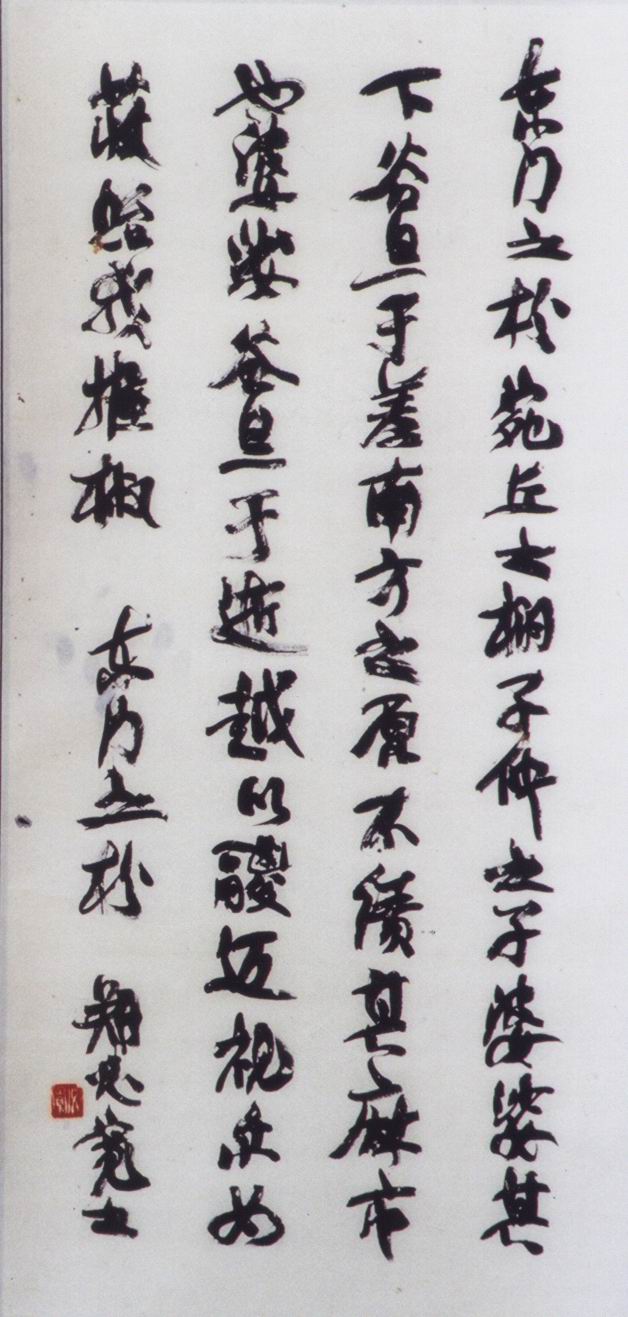 東门之枌菀丘之栩子仲之子婆娑其
下谷旦于差南方之原不績其麻市
也婆娑谷旦于逝越以鬷迈視尔如
荍貽我握椒 东门之枌